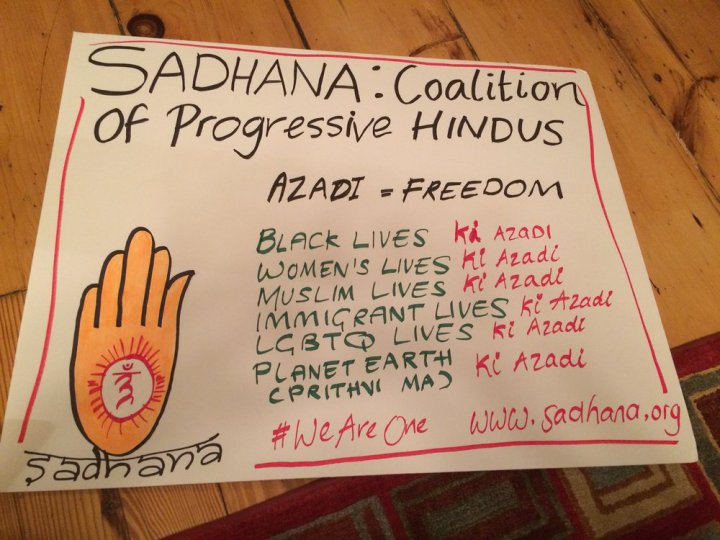 SADHANA: Coalition
Of Progressive HINDUS
AZADI = FREEDOM
BLACK LIVES Ki AZADI
WOMEN'S LIVES Ki Azadi
MUSLIM LIVES Ki Azadi
IMMIGRANT LIVES Ki Azadi
LGBTQ LIVES Ki Azadi
PLANET EARTH Ki Azadi
(PRITHVI MA)
#WeAreOne www.sadhana.org
sadhana